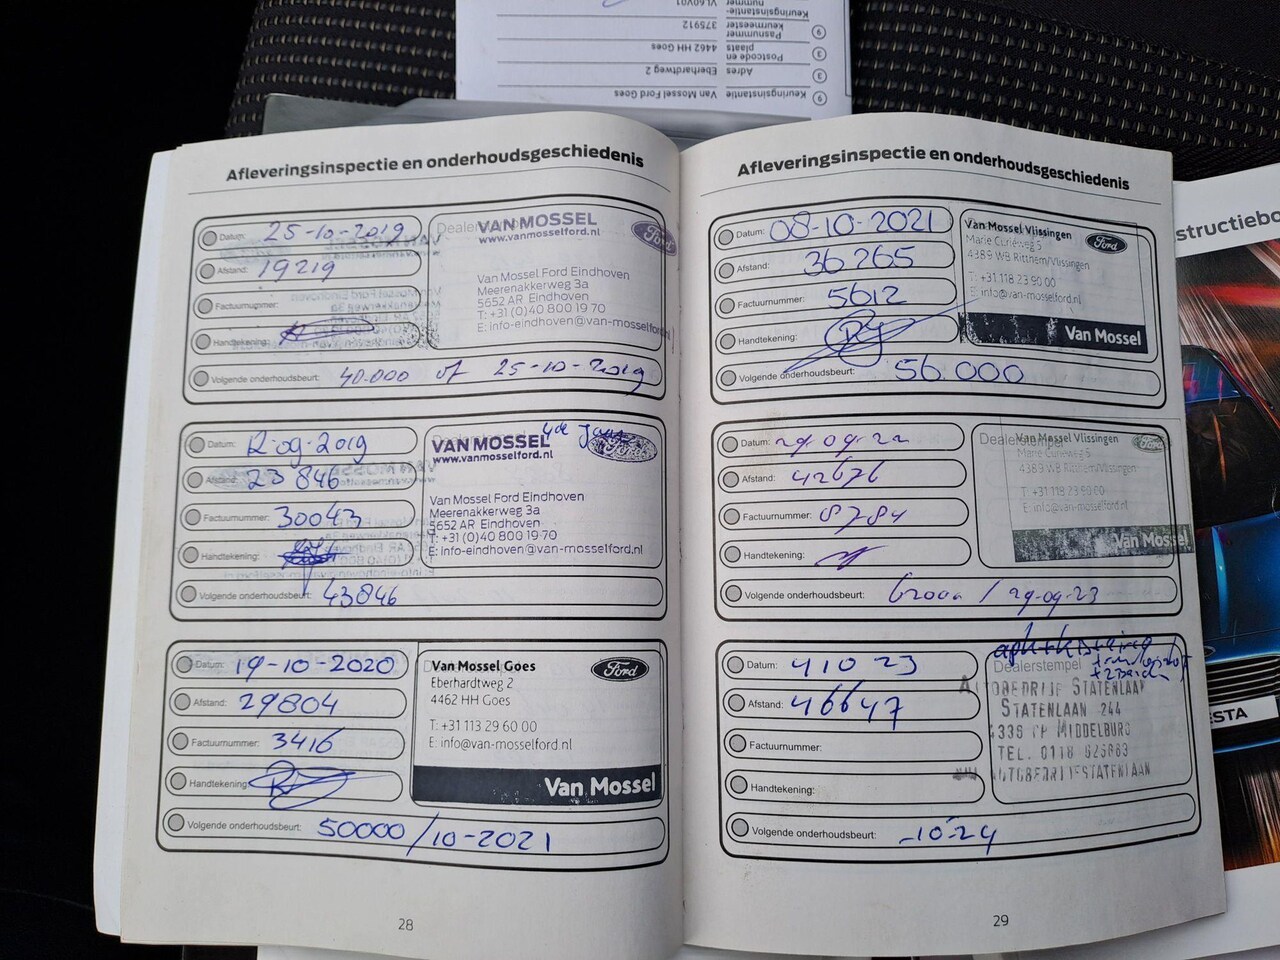 Keuringsinstantie-
nummer VL60V01
Pasnummer
keurmeester 375912
Postcode en
plaats 4462 HH Goes
Adres Eberhardtweg 2
Keuringsinstantie Van Mossel Ford Goes
Afleveringsinspectie en onderhoudsgeschiedenis
Datum: 25-10-2019
Afstand: 19219
Factuurnummer:
Handtekening:
Volgende onderhoudsbeurt: 40.000 of 25-10-2019
VAN MOSSEL
www.vanmosselford.nl
Ford
Van Mossel Ford Eindhoven
Meerenakkerweg 3a
5652 AR Eindhoven
T: +31 (0)40 800 19 70
E: info-eindhoven@van-mosselford
Datum: 12-09-2019
Afstand: 23 846
Factuurnummer: 30043
Handtekening:
Volgende onderhoudsbeurt: 43846
VAN MOSSEL 4de
www.vanmosselford.nl
Ford
Van Mossel Ford Eindhoven
Meerenakkerweg 3a
5652 AR Eindhoven
T: +31 (0)40 800 19 70
E: info-eindhoven@van-mosselford.nl
Datum: 19-10-2020
Afstand: 29804
Factuurnummer: 3416
Handtekening:
Volgende onderhoudsbeurt: 50000/10-2021
Van Mossel Goes
Eberhardtweg 2
4462 HH Goes
T: +31 113 29 60 00
E: info@van-mosselford.nl
Ford
Van Mossel
28
Afleveringsinspectie en onderhoudsgeschiedenis
Datum: 08-10-2021
Afstand: 36265
Factuurnummer: 5612
Handtekening:
Volgende onderhoudsbeurt: 56.000
Van Mossel Vlissingen
Marie Curieweg 5
4389 WB Ritthem/Vlissingen
T: +31 118 23 90 00
E: info@van-mosselford.nl
Ford
Van Mossel
Datum: 29-09-22
Afstand: 42676
Factuurnummer: 8784
Handtekening:
Volgende onderhoudsbeurt: 62000 / 29-09-23
Dealerstempel
Van Mossel Vlissingen
Marie Curieweg 5
4389 WB Ritthem/Vlissingen
T: +31 118 23 90 00
E: info@van-mosselford.nl
Van Mossel
Datum: 41023
Afstand: 46647
Factuurnummer:
Handtekening:
Volgende onderhoudsbeurt: -10-24
Dealerstempel
AUTOBEDRIJF STATENLAAN
STATENLAAN 244
TEL. 0118 625883
29
structiebo
ESTA